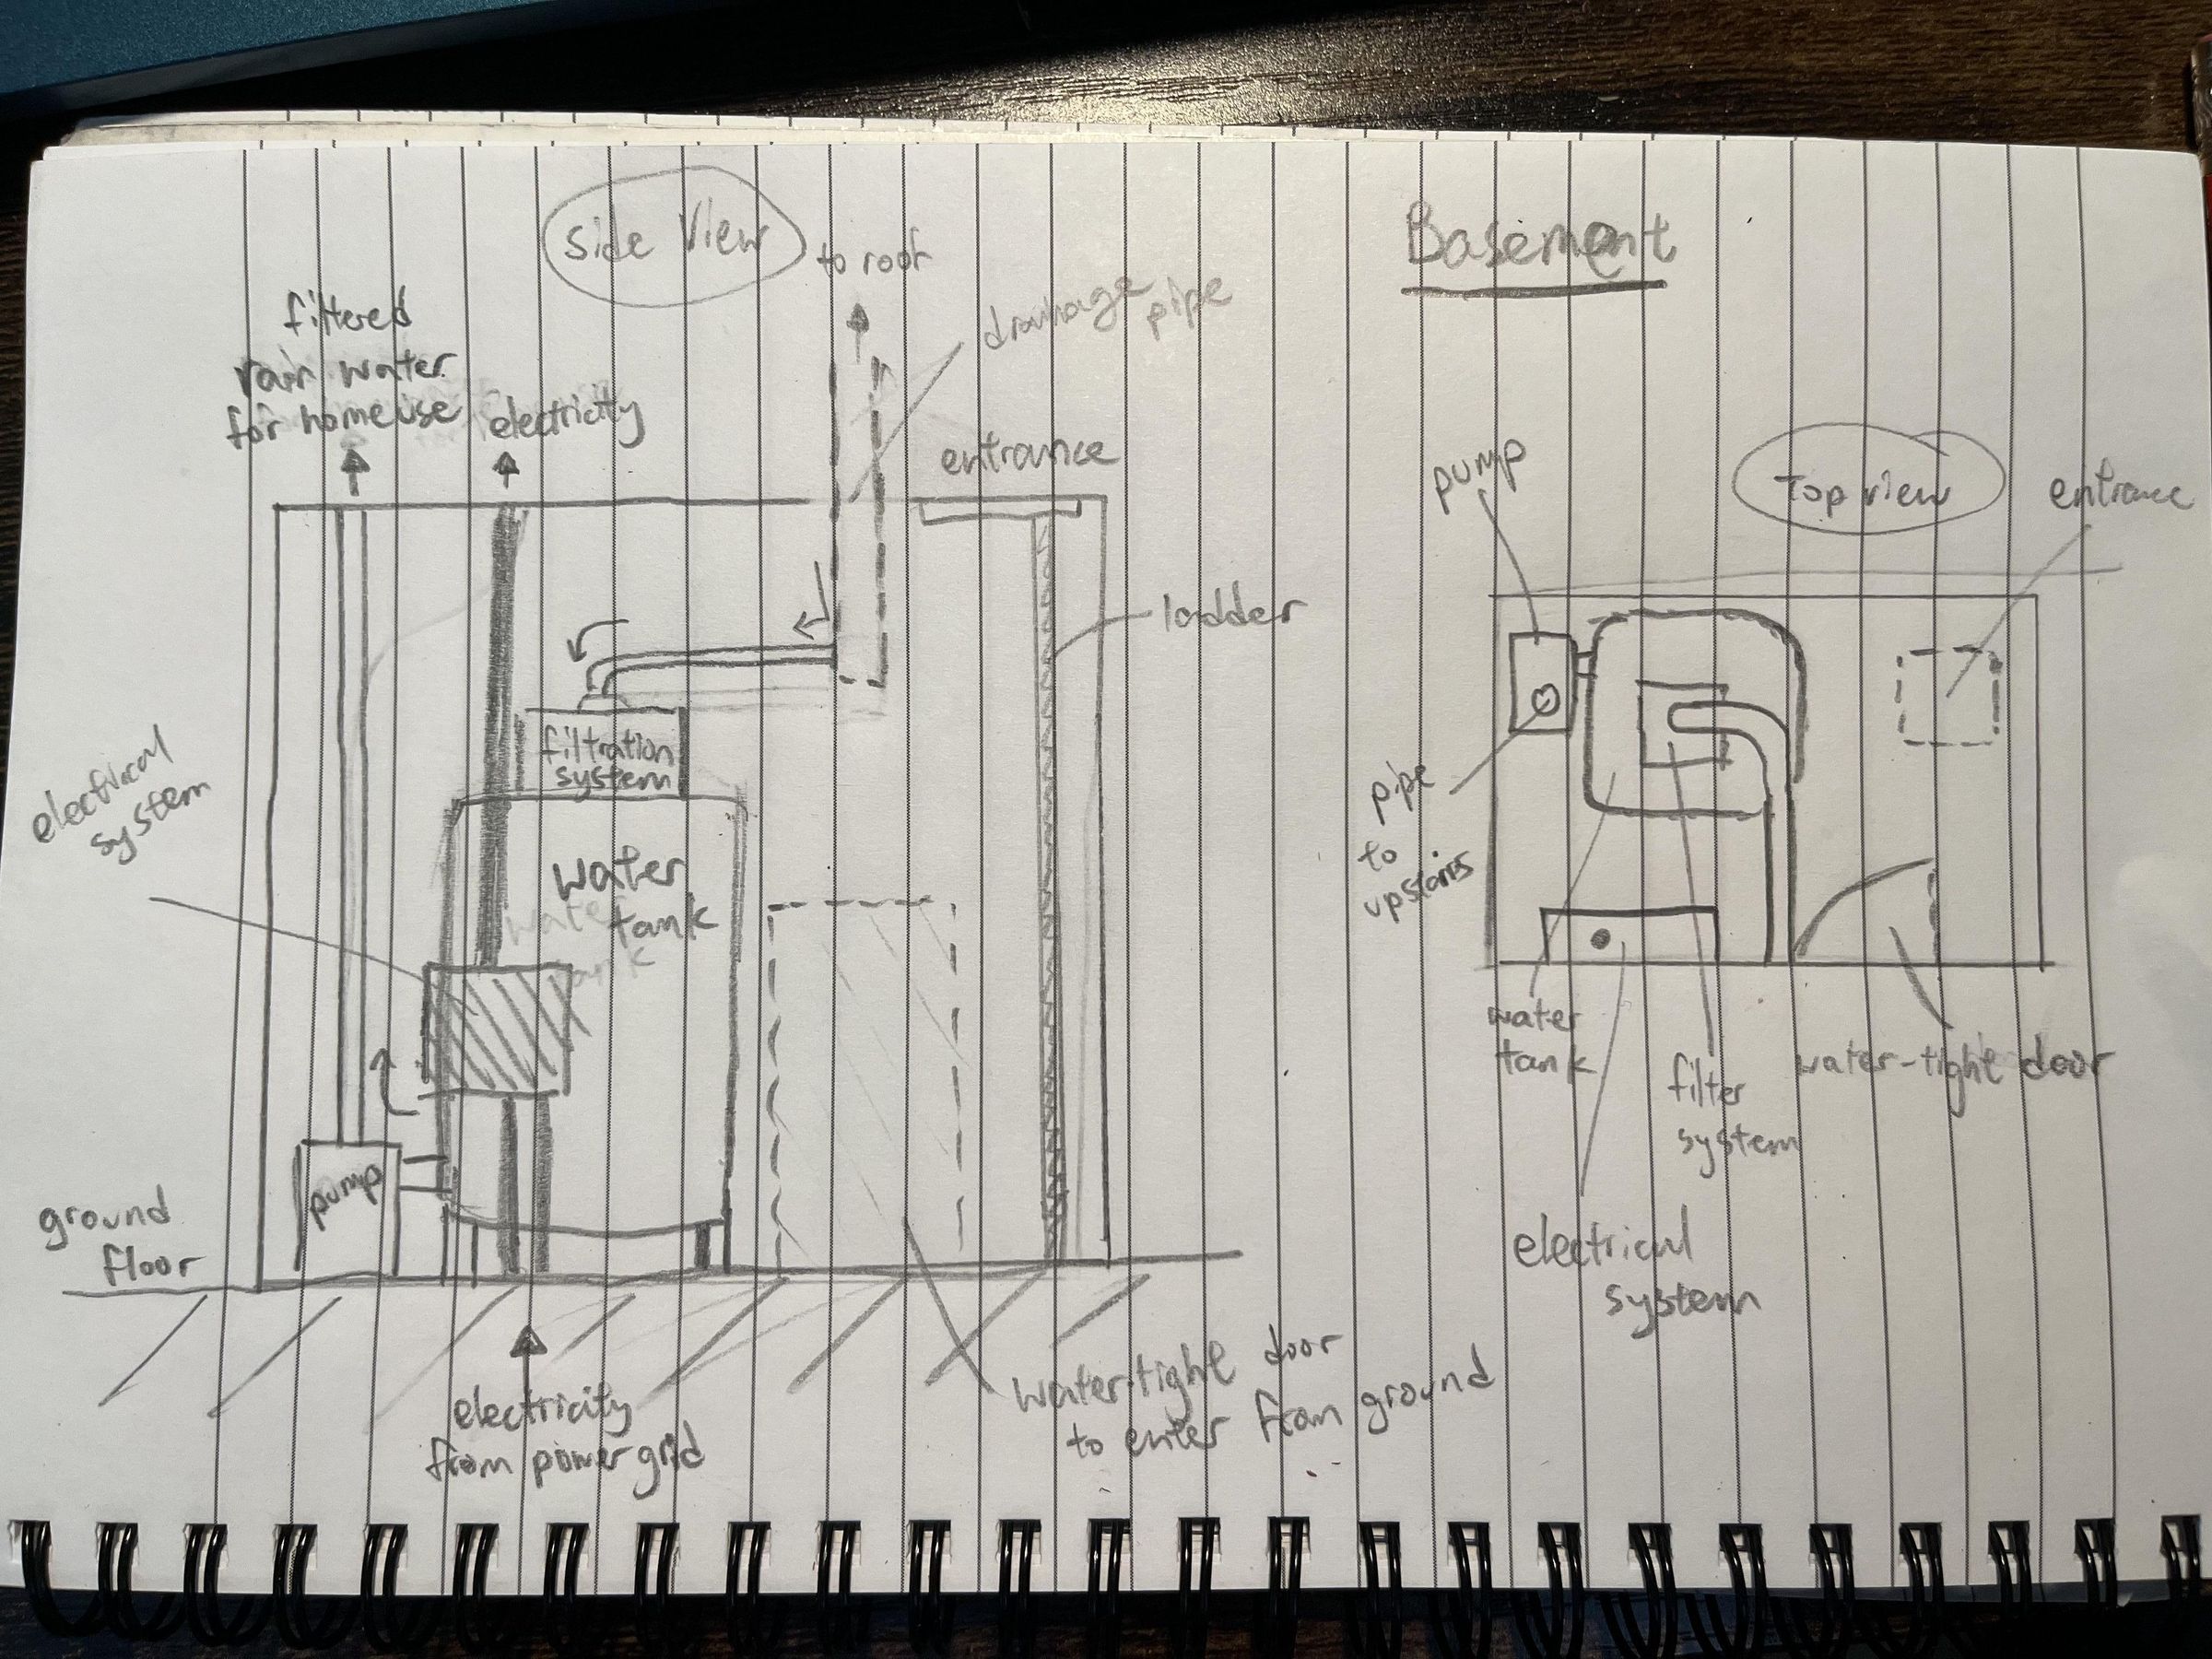 Side View
Basement
to roof
drainage
pipe
filtered
rain water
for home use
electricity
entrance
ladder
filtration
system
electrical
system
water
tank
water
tank
pump
ground
floor
electricity
from power grid
water-tight door
to enter from ground
Top view
entrance
pump
pipe
to
upstairs
water
tank
filter
system
water-tight door
electrical
system